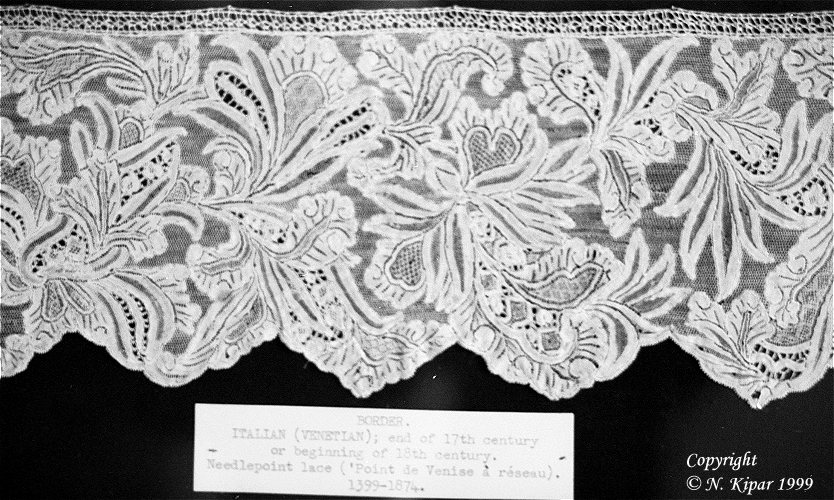 BORDER.
ITALIAN (VENETIAN); end of 17th century
or beginning of 18th century.
Needlepoint lace ('Point de Venise à réseau).
1399-1874.
Copyright
© N. Kipar 1999